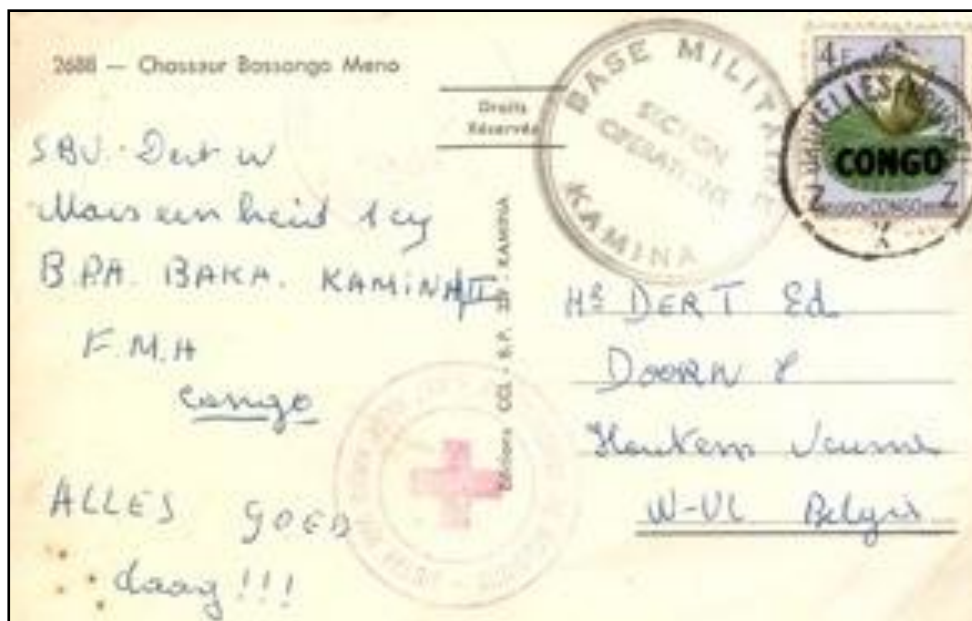 2688 — Chasseur Bassongo Meno
Droits
Réservés
BASE MILITAIRE
SECTION
OPERATIONS
KAMINA
4F
BRUXELLES
CONGO
Z Z
CONGO
X
SBV. Dert W
1 cy
B.P.A. BAKA. KAMINA II
F.M.H
Congo
ALLES GOED
daag!!!
Editions CCL - B.P. KAMINA
Hr DERT Ed
DOORN 8
Houtem Veurne
W-VL België